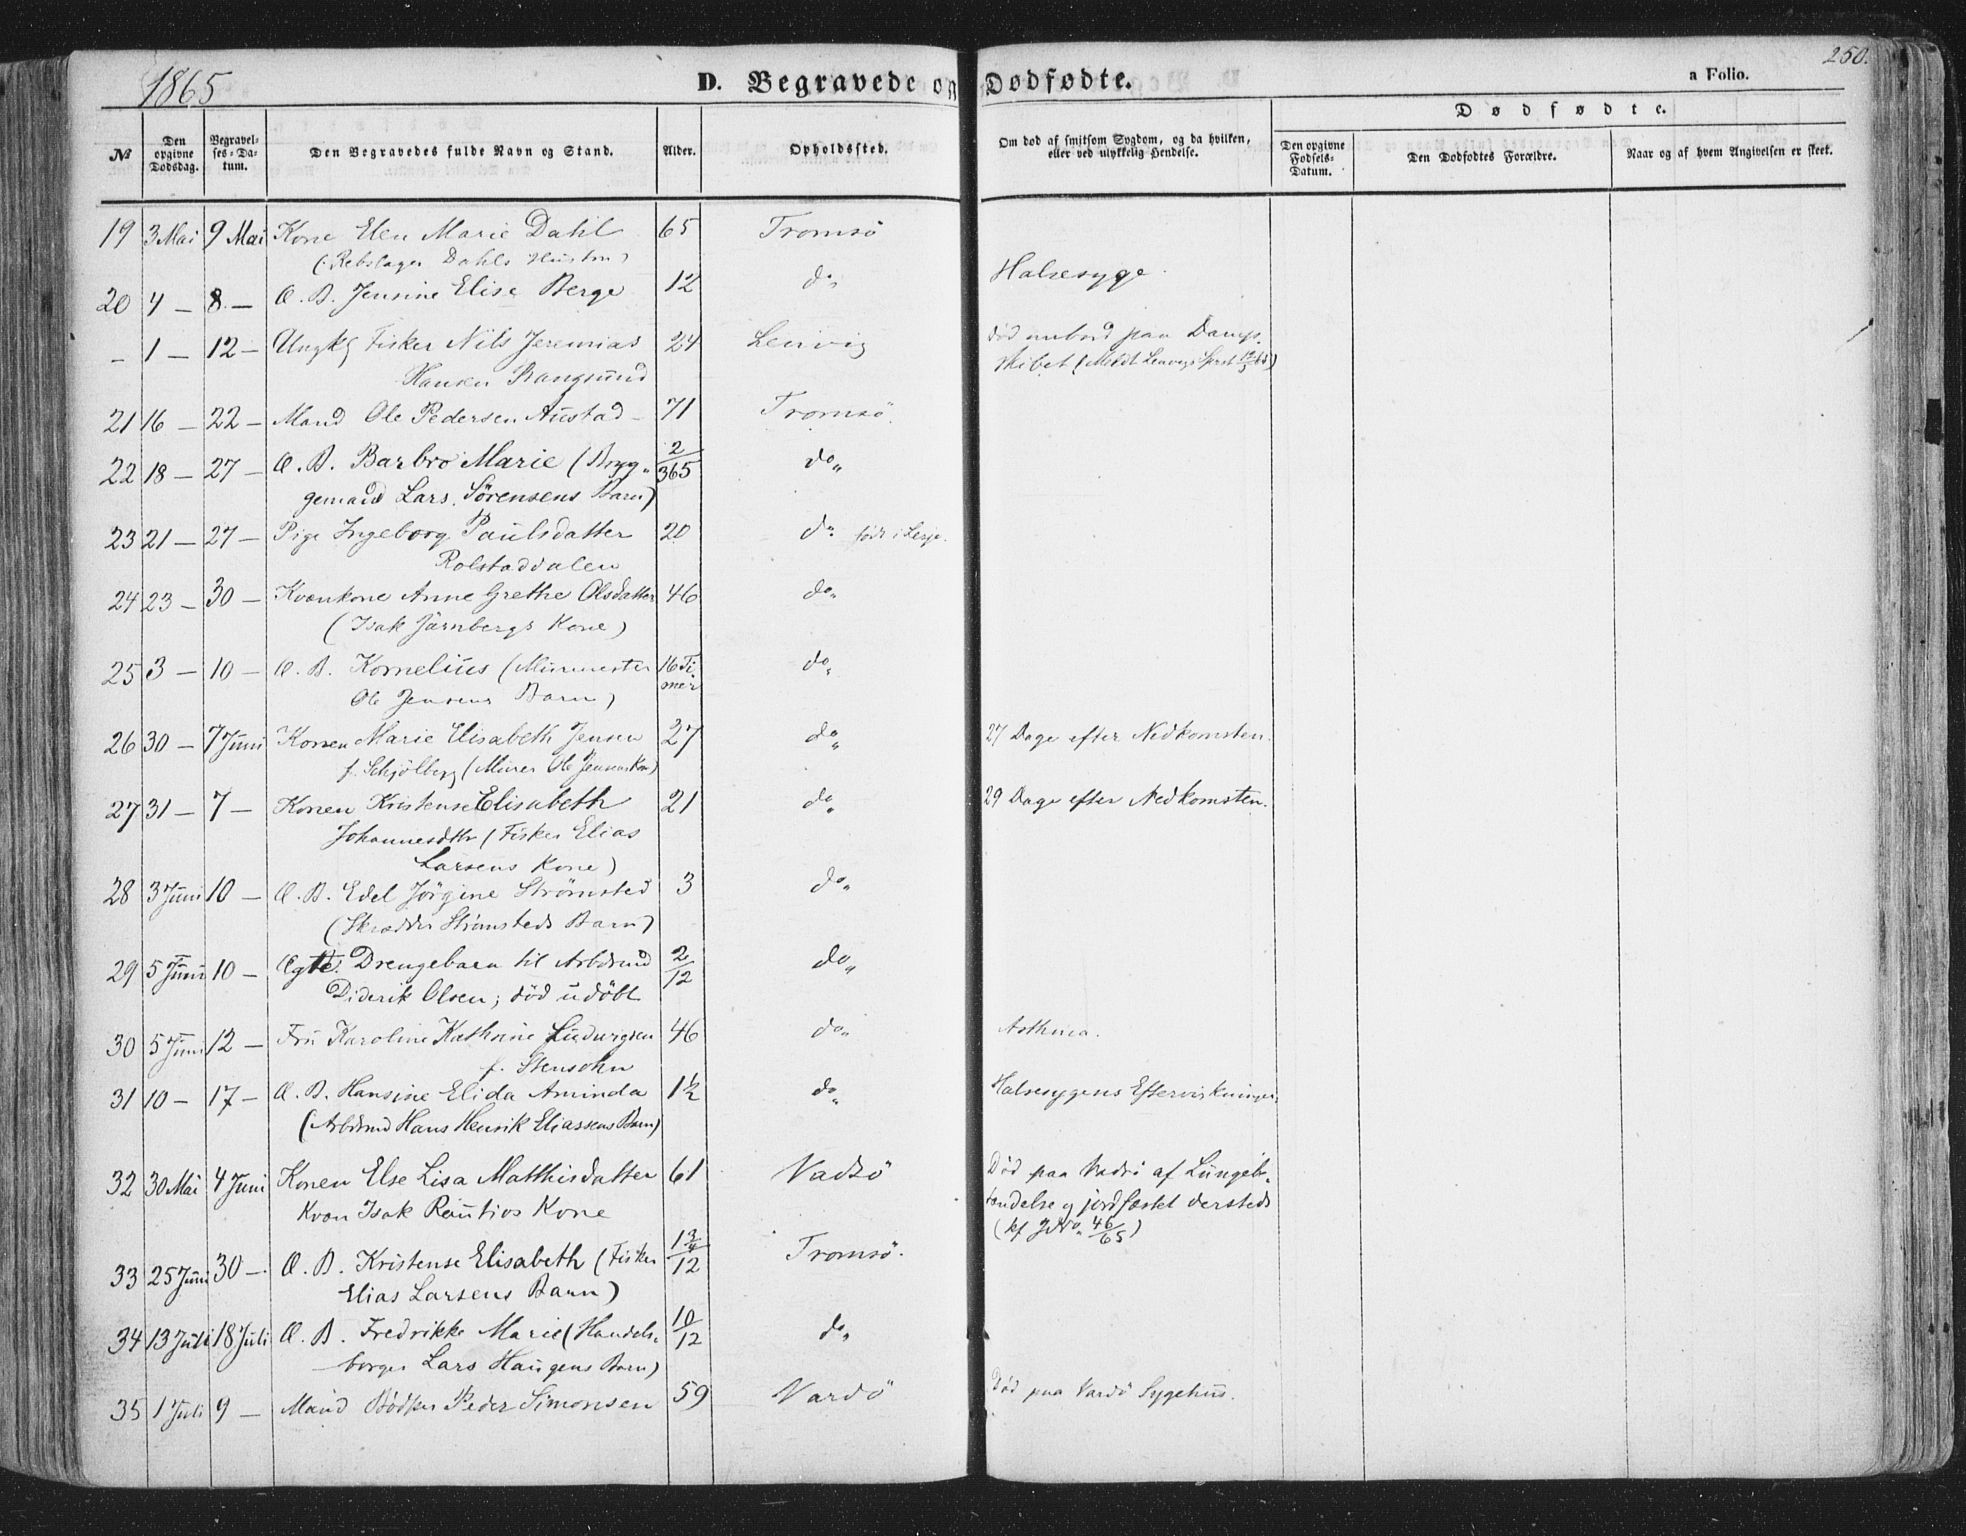 1865
D. Begravede og Dødfødte.
a Folio.
250.
No
Den opgivne Dødsdag.
Begravelses-Datum.
Den Begravedes fulde Navn og Stand.
Alder.
Opholdssted.
Om død af smitsom Sygdom, og da hvilken, eller ved ulykkelig Hendelse.
Dødfødte.
Den opgivne Fødsels-Datum.
Den Dødfødtes Forældre.
Naar og af hvem Angivelsen er skeet.
19 3 Mai 9 Mai Kone Elen Marie Dahl 65 Tromsö
(Rebslager Dahls Hustru)
20 4 — 8 — Æ. B. Jensine Elise Berge 12 do Halsesyge.
— 1 — 12 — Ungk. Fisker Nils Jeremias 24 Lenvig död ombord paa Damp-
Hansen Rangsund skibet (Meldt Lenvigs Sprst
21 16 — 22 — Mand Ole Pedersen Austad — 71 Tromsö.
22 18 — 27 — Æ. B. Barbro Marie (Bryg- 2/365 do
gemand Lars Sörensens Barn)
23 21 — 27 — Pige Ingeborg Paulsdatter 20 do födt i Lesje.
Rolstaddalen
24 23 — 30 — Kvænkone Anne Grethe Olsdatter 46 do
(Isak Järnbergs Kone)
25 3 — 10 — Æ. B. Kornelius (Murmester 16 Ti-
Ole Jensens Barn) mer do
26 30 — 7 Juni Konen Marie Elisabeth Jensen 27 do 27 Dage efter Nedkomsten.
f. Schjölberg (Murer Ole Jensens Kone)
27 31 — 7 — Konen Kristense Elisabeth 21 do 29 Dage efter Nedkomsten.
Johannesdtr (Fisker Elias
Larsens Kone)
28 3 Juni 10 — Æ. B. Edel Jörgine Strömsted 3 do
(Skrædder Strömsteds Barn)
29 5 Juni 10 — Ægte Drengebarn til Arbdsmd 2/12 do
Diderik Olsen; död udöbt
30 5 Juni 12 — Fru Karoline Kathrine Ludwigsen 46 do Asthma.
f. Stensohn
31 10 — 17 — Æ. B. Hansine Elida Aminda 1½ do Halsesygens Eftervirkninger.
(Arbdsmd Hans Henrik Eliassens Barn)
32 30 Mai 4 Juni Konen Else Lisa Matthisdatter 61 Vadsö Död paa Vadsö af Lungebe-
Kvæn Isak Rautios Kone tændelse og jordfæstet dersteds
(kf JNo. 46/65)
33 25 Juni 30 — Æ. B. Kristense Elisabeth (Fisker 1¾/12 Tromsö.
Elias Larsens Barn)
34 13 Juli 18 Juli Æ. B. Fredrikke Marie (Handels- 10/12 do
borger Lars Haugens Barn)
35 1 Juli 9 — Mand Bödker Peder Simonsen 59 Vardö Död paa Vardö Sygehus.